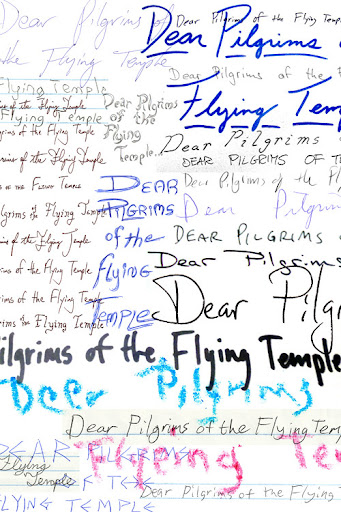 Dear Pilgrims of
the Flying Temple
Dear Pilgrims of the Flying Temple
Dear Pilgrims o
Dear Pilgrims of the F
Flying Temp
Flying Temple
ns of the Flying Temple
of the Flying Temple
grims of the Flying Temple
grims of the Flying Temple
s of the Flying Temple
grims of the Flying Temple
ims of the Flying Temple
rims of the Flying Temple
grims of the Flying Temple
rims of the Flying Temple
Dear Pilgrims
of the
Flying
Temple...
Dear Pilgrims
DEAR PILGRIMS OF T
Dear Pilgrims of the Fly
DEAR
PILGRIMS
of the
flying
TEMPLE
Dear Pilgrim
DEAR PILGRIMS O
Dear Pilgrims
Dear Pilgr
ilgrims of the Flying Temple
Dear Pilgrims
Dear Pilgrims of the Flying Temp
DEAR PILGRIMS
Flying Te
Flying
Temple
OF THE
Dear Pilgrims of the Flying T
FLYING TEMPLE